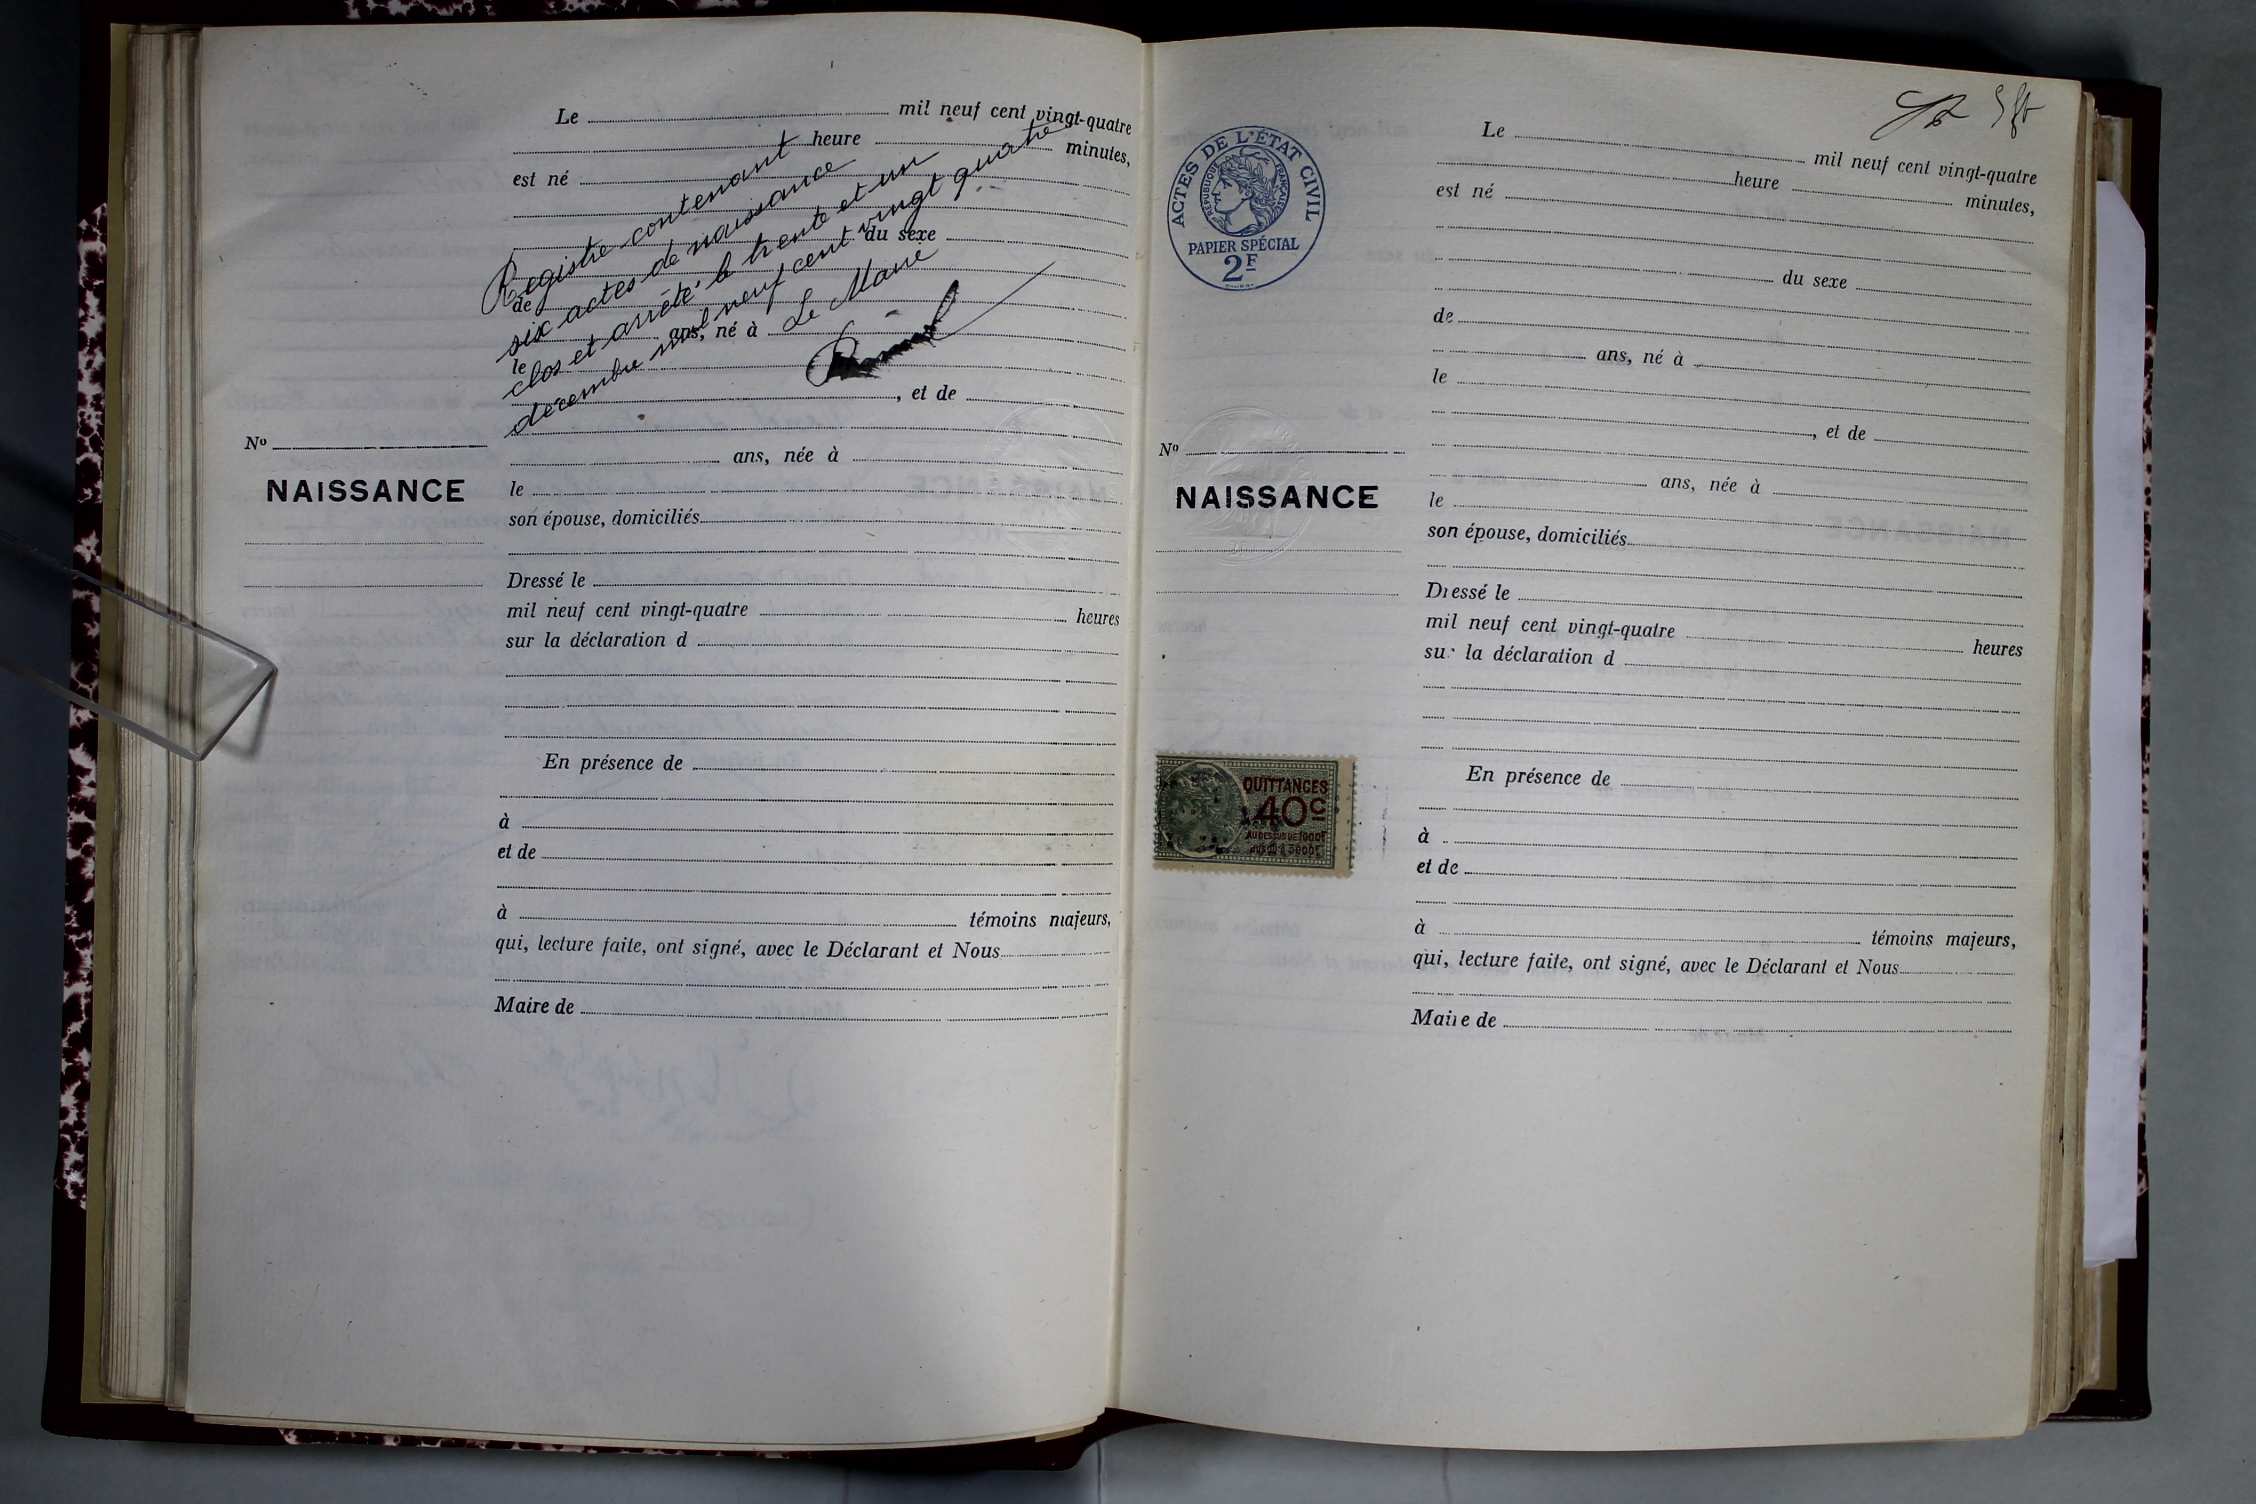 Le mil neuf cent vingt-quatre
heure minutes,
est né
du sexe
de
ans, né à
le
, et de
ans, née à
le
son épouse, domiciliés
Dressé le
mil neuf cent vingt-quatre heures
sur la déclaration d
En présence de
à
et de
à témoins majeurs,
qui, lecture faite, ont signé, avec le Déclarant et Nous
Maire de
Registre contenant
six actes de naissance
clos et arrêté le trente et un
décembre mil neuf cent vingt quatre
Le Maire
Nº
NAISSANCE
ACTES DE L'ÉTAT CIVIL
RÉPUBLIQUE FRANÇAISE
PAPIER SPÉCIAL
2F
Nº
NAISSANCE
QUITTANCES
40c
AU DESSUS DE 1000F
JUSQU'À 3000F
Le mil neuf cent vingt-quatre
heure minutes,
est né
du sexe
de
ans, né à
le
, et de
ans, née à
le
son épouse, domiciliés
Dressé le
mil neuf cent vingt-quatre heures
sur la déclaration d
En présence de
à
et de
à témoins majeurs,
qui, lecture faite, ont signé, avec le Déclarant et Nous
Maire de